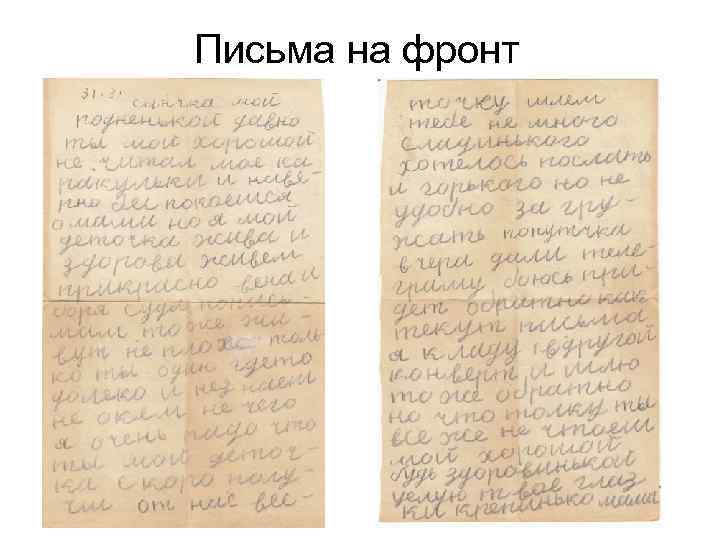 Письма на фронт
31.3. сыночка мой
родненькой давно
ты мой хорошой
не читал мое ка
ракульки и навер-
но бес
о мами но я мой
деточка жива и
здорова живем
прикрасно вена и
боря судя по пись-
мам тоже жи-
вут не плохо толь
ко ты одно гдето
далеко и нез наем
не окем не чего
я очень рада что
ты мой деточ-
ка скоро полу-
чи от нас вес-
точку шлем
тебе не много
сладинького
хотелось послать
и горького но не
удобно за гру-
жать попутчка
вчера дали теле-
грамму боюсь при-
дет обратно как
текут письма
я кладу вдругой
конверт и шлю
тоже обратно
но что толку ты
все же не чтаеш
мой хорошой
будь здоровинькой
целую твое глаз
ки крепинько мама